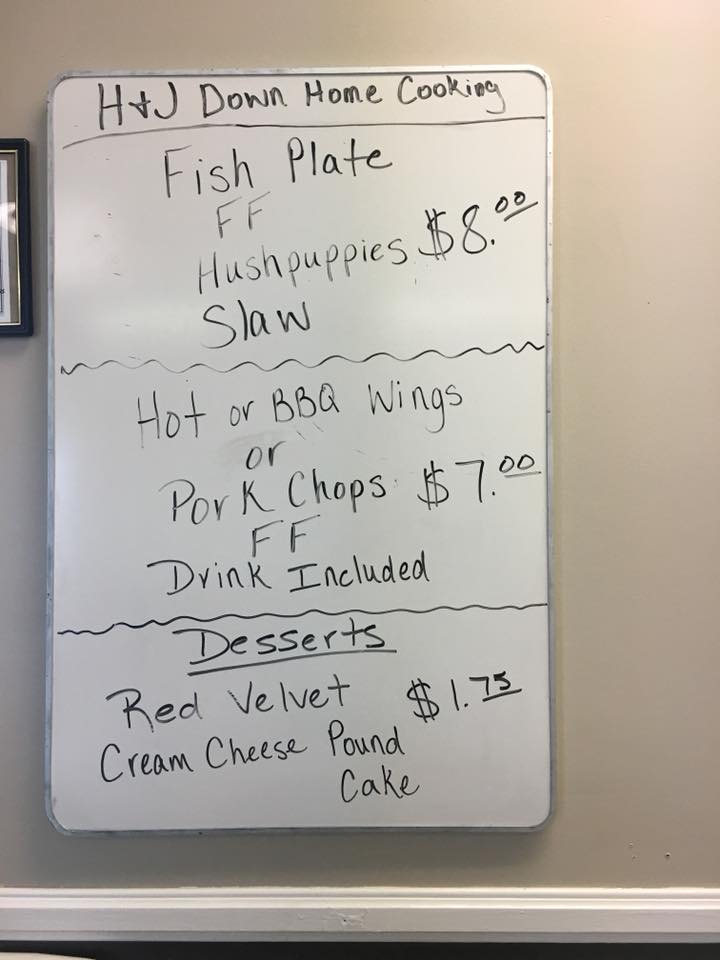 H+J Down Home Cooking
Fish Plate
FF
Hushpuppies $8.00
Slaw
Hot or BBQ Wings
or
Pork Chops $7.00
FF
Drink Included
Desserts
Red Velvet $1.75
Cream Cheese Pound
Cake